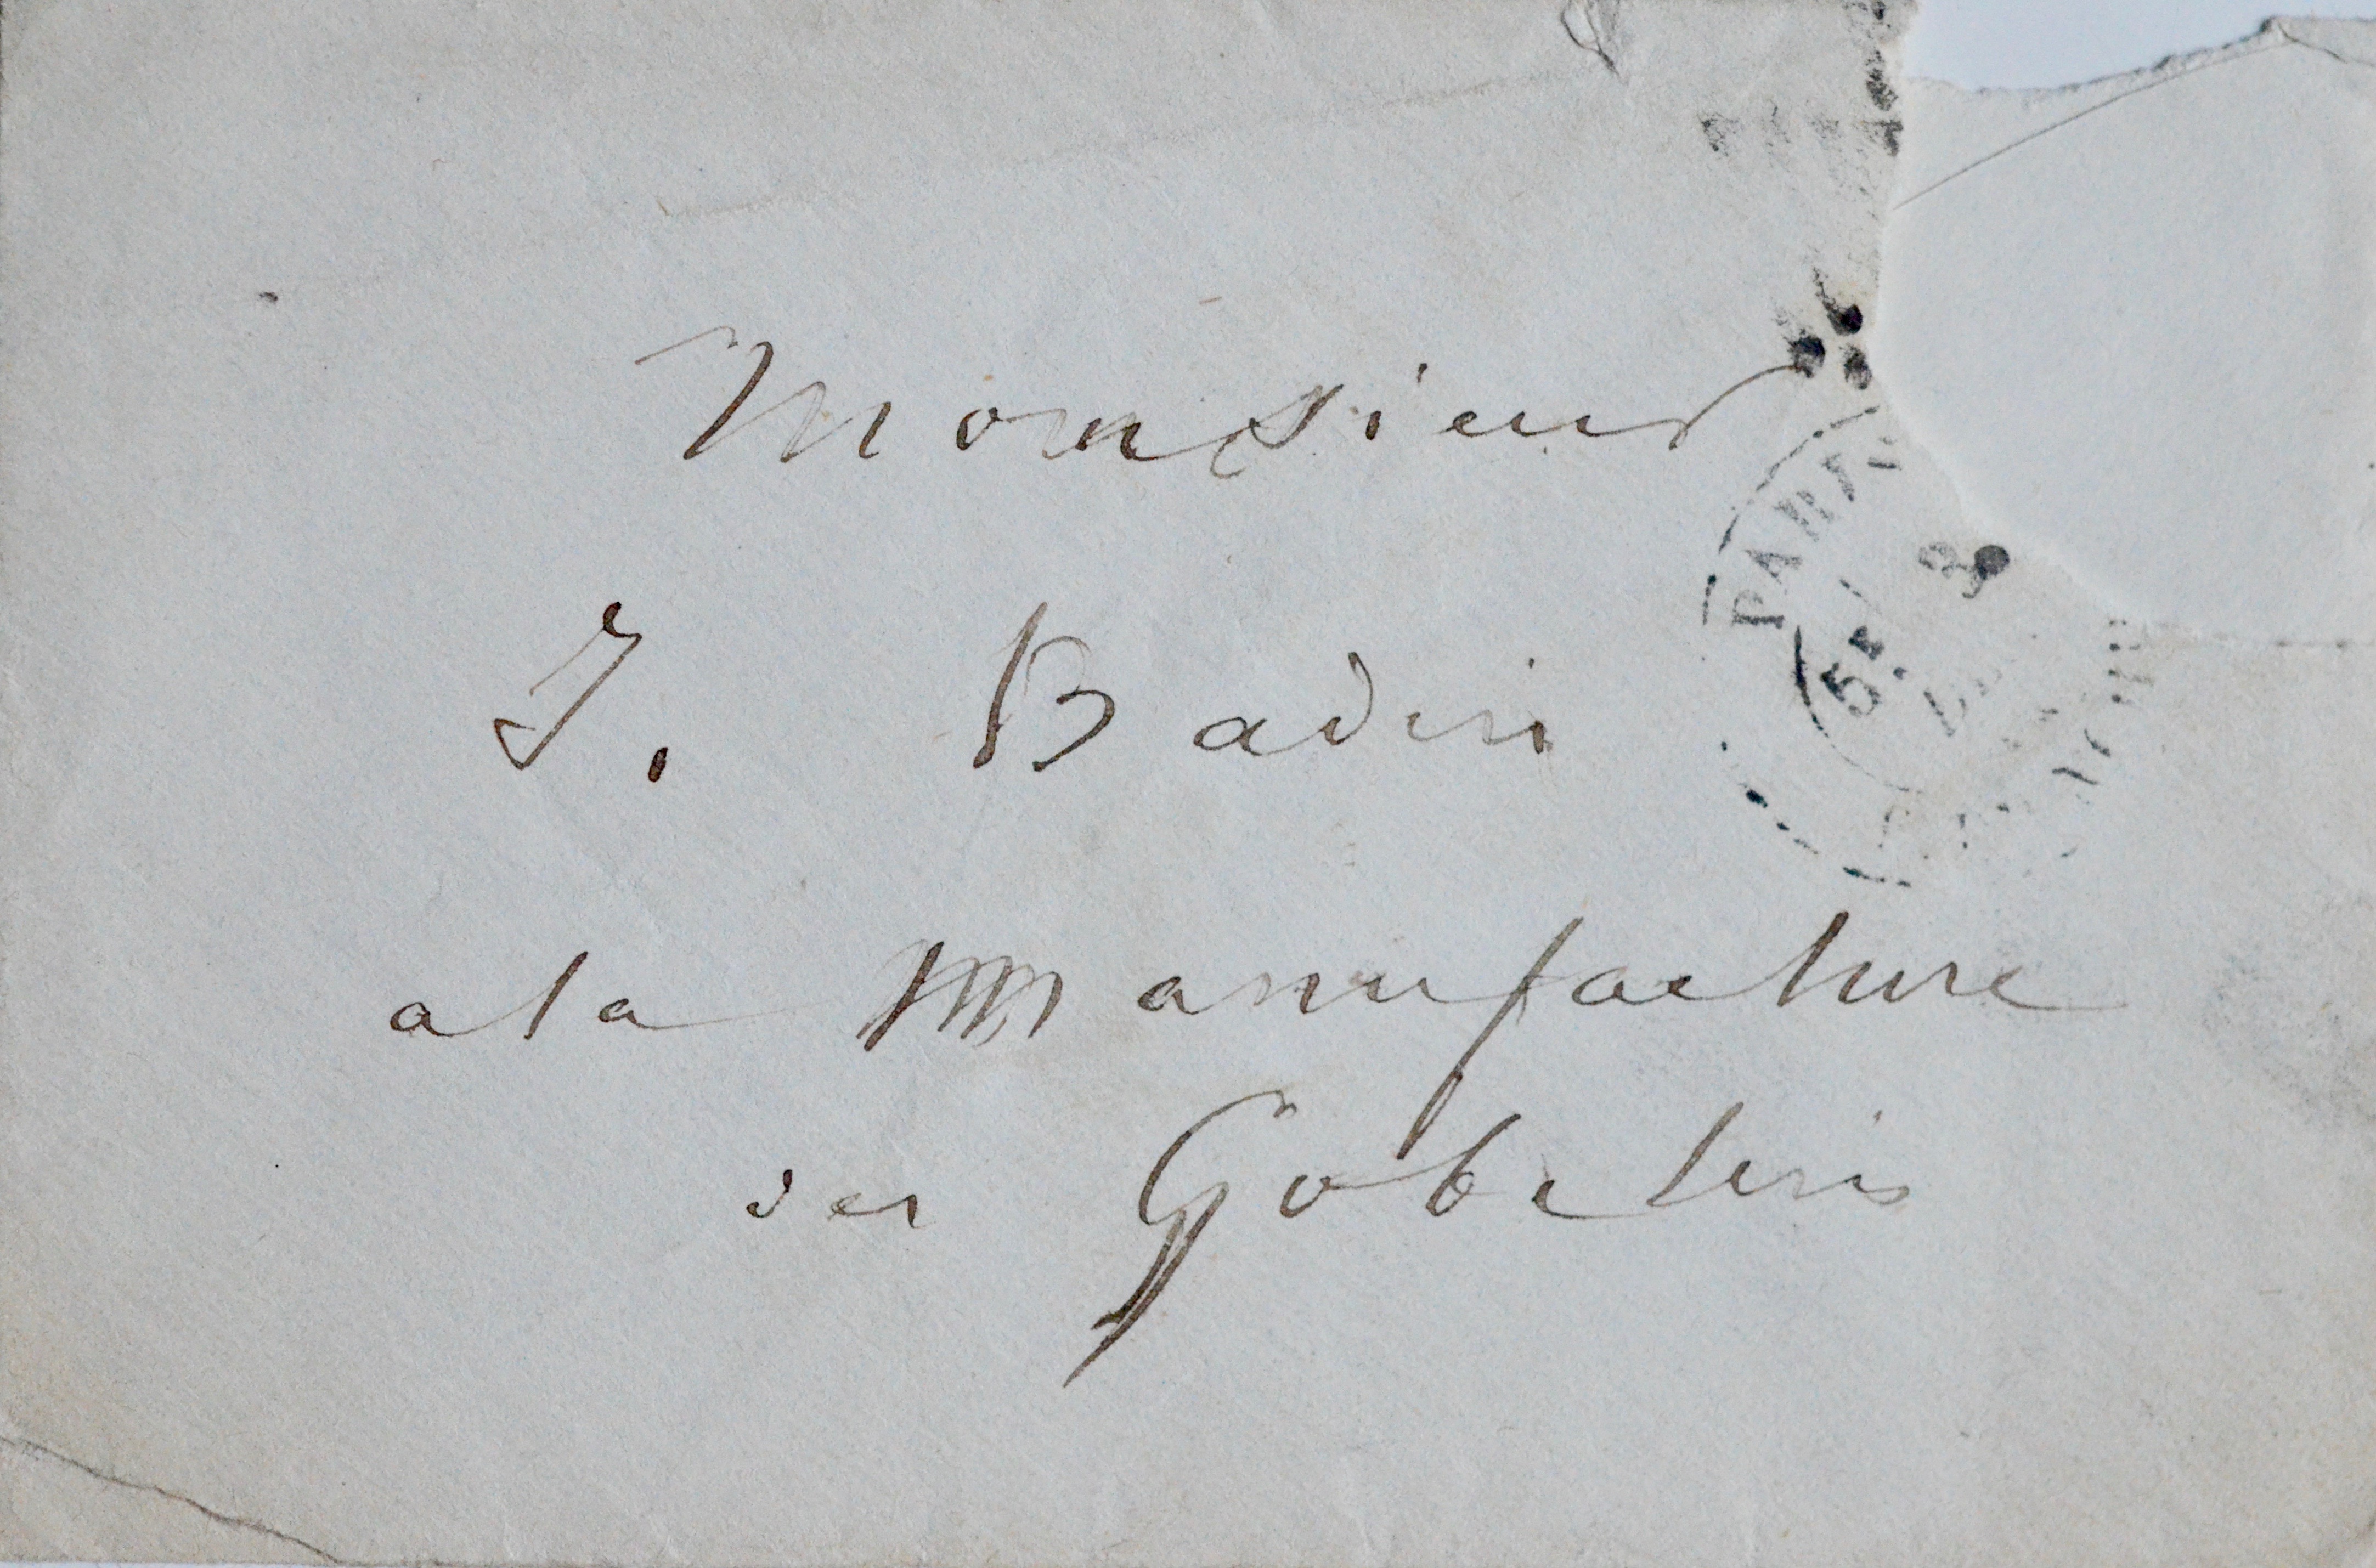 Monsieur
J. Badin
a la Manufacture
des Gobelins
PARIS
5E